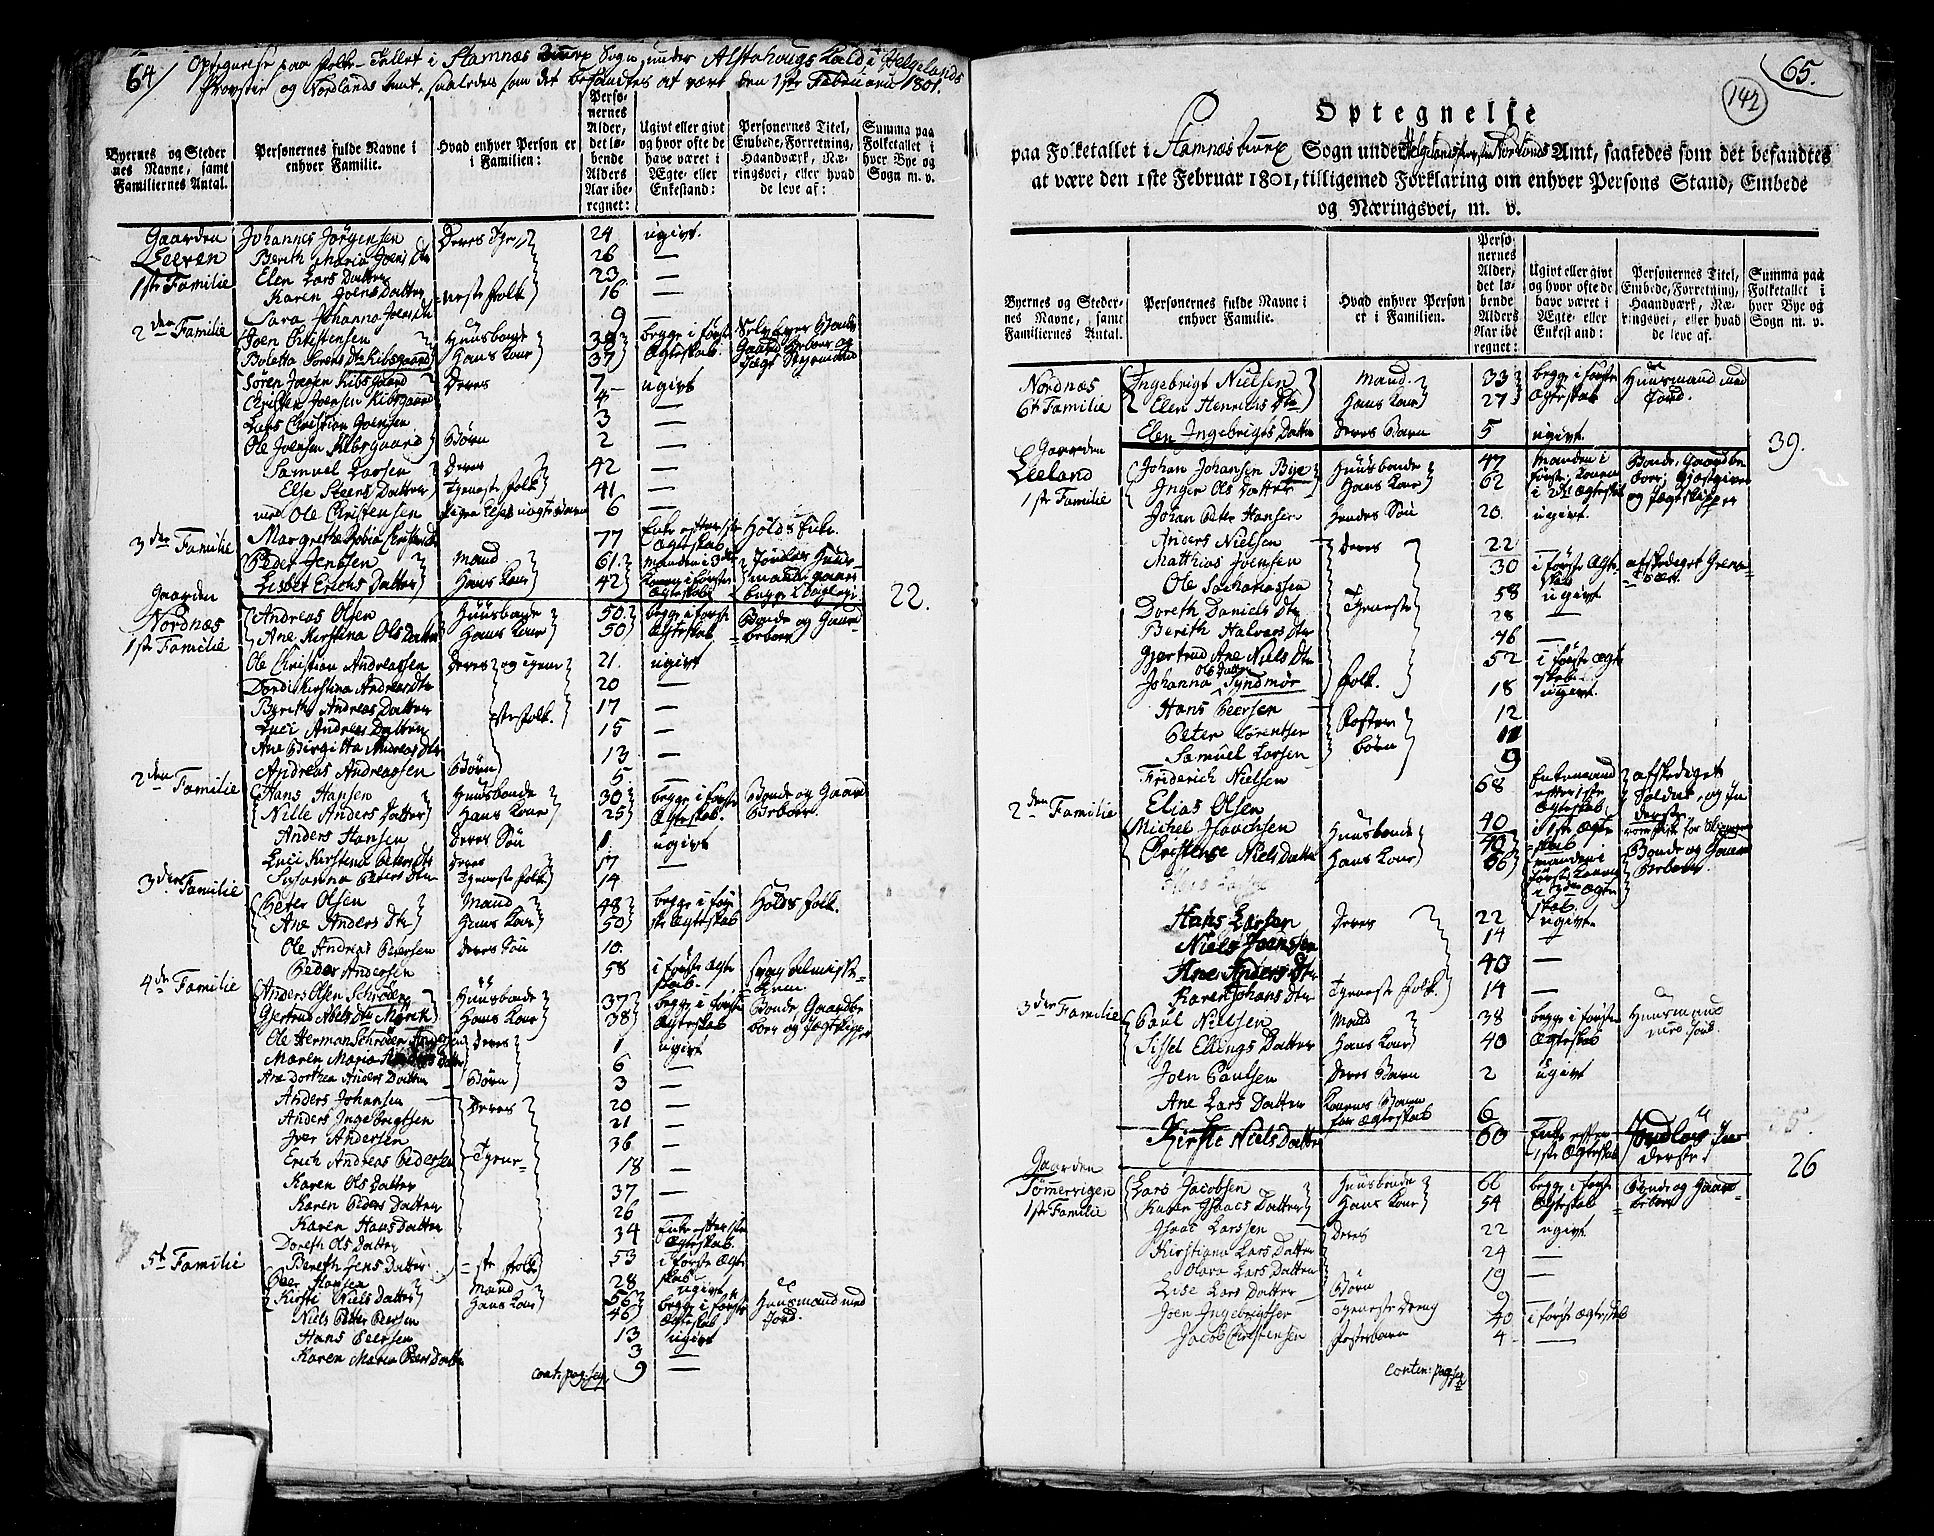 64/ Optegnelse paa Folke-Tallet i Stamnæs Sogn under Alstahougs Kald i Helgelands
Provstie og Nordlands Amt, saaledes som det befandtes at være den 1ste Februarii 1801.
Byernes og Stedernes Navne, samt Familiernes Antal.
Personernes fulde Navne i enhver Familie.
Hvad enhver Person er i Familien:
Personernes Alder, det løbende Alders Aar iberegnet:
Ugivt eller givt og hvor ofte de have været i Ægte- eller Enkestand:
Personernes Titel, Embede, Forretning, Haandværk, Næringsvei, eller hvad de leve af:
Summa paa Folketallet i hver Bye og Sogn m. v.
Gaarden Johannes Jörgensen Deres Tjene 24 ugivt.
Leeren Berith Maria Joens Dtr 26 —
1ste Familie Elen Lars Datter 23 —
Karen Joens Datter neste folk 16 —
Sara Johanna Joens Dtr 9 —
2den Familie Joen Christensen Huusbonde 38 begge i første Selv Eyer Bonde
Boletta Sørens Dtr Kibsgaard Hans Kone 37 Ægteskab. Gaard Beboer og Jægt Skipper
Søren Joensen Kibsgaard Deres 7 ugivt
Christen Joensen Kibsgaard 4 —
Lars Christian Joensen 3 —
Ole Joensen Kibsgaard Børn 2 —
Samuel Larsen Deres 42 —
Else Steens Datter Tjeneste folk 41 —
Ole Christensen 6 —
3die Familie Margrethe 77 Enke efter 1ste Ægteskab Holds Enke.
Peder Jenssen Mand 61 manden i 3die
Lisbet Erichs Datter Hans Kone 42 Konen i første Ægteskab
22.
Gaarden Andreas Olsen Huusbonde 50 begge i første Bonde og Gaard
Nordnæs Ane Kirstina Ols Datter Hans Kone 50 Ægteskab beboer
1ste Familie
Ole Christian Andreassen Deres og tjene 21. ugivt
Dordi Kirstina Andreas Dtr 20 —
Byrithe Andreas Datter 17 —
Luci Andreas Datter stefolk. 15 —
Ane Birgitta Andreas Dtr 13 —
Andreas Andreassen Børn 5. —
2den Familie Hans Hansen Huusbonde 30 begge i første Bonde og Gaard
Nille Anders Datter Hans Kone 25 Ægteskab. Beboer.
Anders Hansen Deres Søn 1. ugivt
Luci Kirstina Peters Dtr Deres 17 —
Susanna Peters Dtr Tjeneste folk 14 —
3die Familie Peter Olsen Mand 48 begge i før Holds folk.
Ane Anders Dtr Hans Kone 50 ste Ægteskab
Ole Andreas Petersen Deres Søn 10. —
Peder Andersen 58 i første Ægteskab.
4de Familie Anders Olsen Schröder Huusbonde 37 begge i første Bonde Gaardbe
Gjertrud Niels Dtr Hans Kone 38 Ægteskab boer og Jægtskipper
Ole Herman Schröder Andersen Deres 1 ugivt
Maren Maria Anders Datter 6 —
Ane Dorthea Anders Datter Børn 3 —
Anders Johansen Deres 20 —
Anders Ingebrigtsen 21 —
Iver Andersen 36 —
Erich Andreas Pedersen Tjene- 18 —
Karen Ols Datter 37 —
Karen Peders Datter 26 —
Karen Hans Datter 34 Enke efter 1ste Ægteskab.
Doreth Ols Datter 53 i første Ægteskab
Bereth Jens Datter ste folk 28 ugivt
5te Familie Peer Hansen Mand 56 begge i første Huusmand med
Kirsti Niels Datter Hans Kone 46 Ægteskab Jord.
Niels Peter Peersen 13 ugivt
Hans Peersen 3
Karen Maria Peers Datter 9 —
cont: pag: seq:
65.
142
Optegnelse
paa Folketallet i Stamnæs Sogn under Helgelands Nordlands Amt, saaledes som det befandtes
at være den 1ste Februar 1801, tilligemed Forklaring om enhver Persons Stand, Embede
og Næringsvei, m. v.
Byernes og Stedernes Navne, samt Familiernes Antal.
Personernes fulde Navne i enhver Familie.
Hvad enhver Person er i Familien.
Personernes Alder, det løbende Alders Aar iberegnet:
Ugivt eller givt og hvor ofte de have været i Ægte- eller Enkestand:
Personernes Titel, Embede, Forretning, Haandværk, Næringsvei, eller hvad de leve af.
Summa paa Folketallet i hver Bye og Sogn m. v.
Nordnæs Ingebrigt Nielsen Mand. 33 begge i første Huusmand med
6te Familie Elen Henrichs Dtr Hans Kone 27 Ægteskab Jord.
Elen Ingebrigts Datter Deres Barn 5 ugivt
39.
Gaarden Johan Johansen Bye Huusbonde 47 Manden i Bonde, Gaardbe
Leeland Inger Ols Datter Hans Kone 62 første, Konen boer, Gjæstgiver
1ste Familie i 2det Ægteskab og Jægtskipper
Johan Peter Hansen Hendes Søn 20 ugivt.
Anders Nielsen Deres 22 —
Matthias Joensen 30 i første Ægteskab afskediget
Ole Zachariassen 58 ugivt
Doreth Daniels Dtr Tjeneste 28 —
Berith Halvors Dtr 46 —
Gjertrud Ane Niels Dtr 52 i første Ægteskab
Johanna Ols Datter Syndmør folk. 18 ugivt.
Hans Peersen Foster 12
Peter Lorentsen børn 11
Samuel Larsen 9
Friderich Nielsen 68 Enkemand efter 1ste Ægteskab afskediget Soldat, og Inderste
2den Familie Elias Olsen 40 i 1ste Ægteskab
Michel Isachsen Huusbonde 40 manden i Bonde og Gaard
Christense Niels Datter Hans Kone 56 første Konen i 3die Ægteskab. Beboer.
Hans Larsen Deres 22 ugivt
Niels Joenssen 14 —
Ane Anders Dtr 40 —
Karen Johans Dtr Tjeneste folk. 14 —
3die Familie Paul Nielsen Mand 38 begge i første Huusmand
Sissel Ellings Datter Hans Kone 40 Ægteskab med Jord.
Joen Paulsen Deres Barn 2 ugivt
Ane Lars Datter Konens Barn før Ægteskab 6 —
Kirsti Niels Datter 60 Enke efter 1ste Ægteskab Jordløs Inderste
26
Gaarden Lars Jacobsen Huusbonde 66 begge i første Bonde og Gaard
Tømmervigen Karen Isaacs Datter Hans Kone 54 Ægteskab beboer
1ste Familie
Isaac Larssen Deres 22 ugivt
Kirstiana Lars Datter 24 —
Olava Lars Datter 19 —
Lise Lars Datter Børn 9
Joen Ingebrigtsen Tjeneste Dreng 40 i første Ægteskab
Jacob Christensen Fosterbarn 4 —
contin: pag: seq: